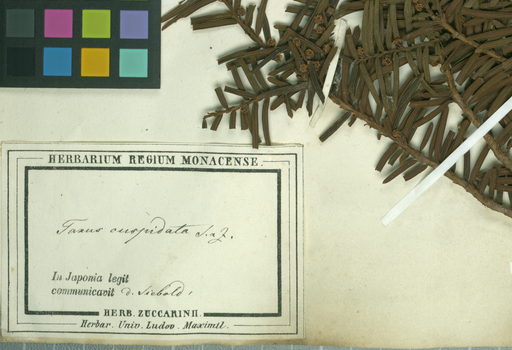 HERBARIUM REGIUM MONACENSE.
Taxus cuspidata S. & Z.
In Japonia legit
communicavit d. Siebold.
HERB. ZUCCARINII.
Herbar. Univ. Ludov. Maximil.